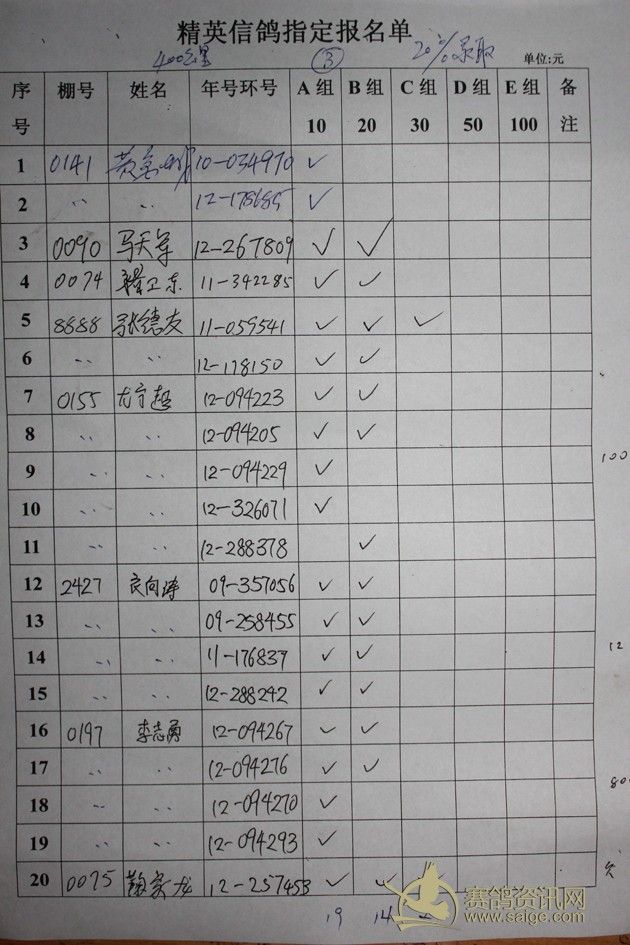 精英信鸽指定报名单
400公里 ③ 20% 录取
单位:元
序号 棚号 姓名 年号环号 A组 10 B组 20 C组 30 D组 50 E组 100 备注
1 0141 10-034970 ✓
2 〃 〃 12-178685 ✓
3 0090 马天军 12-267809 ✓ ✓
4 0074 卫东 11-342285 ✓ ✓
5 8888 张德友 11-059541 ✓ ✓ ✓
6 〃 〃 12-178150 ✓ ✓
7 0155 12-094223 ✓ ✓
8 〃 〃 12-094205 ✓ ✓
9 〃 〃 12-094229 ✓
10 〃 〃 12-326071 ✓
11 〃 〃 12-288378 ✓
12 2427 09-357056 ✓ ✓
13 〃 〃 09-258455 ✓ ✓
14 〃 〃 11-176837 ✓ ✓
15 〃 〃 12-288242 ✓ ✓
16 0197 李志勇 12-094267 ✓ ✓
17 〃 〃 12-094276 ✓ ✓
18 〃 〃 12-094270 ✓
19 〃 〃 12-094293 ✓
20 0075 12-257453 ✓ ✓
19 14
100
12
80
赛鸽资讯网
www.saige.com